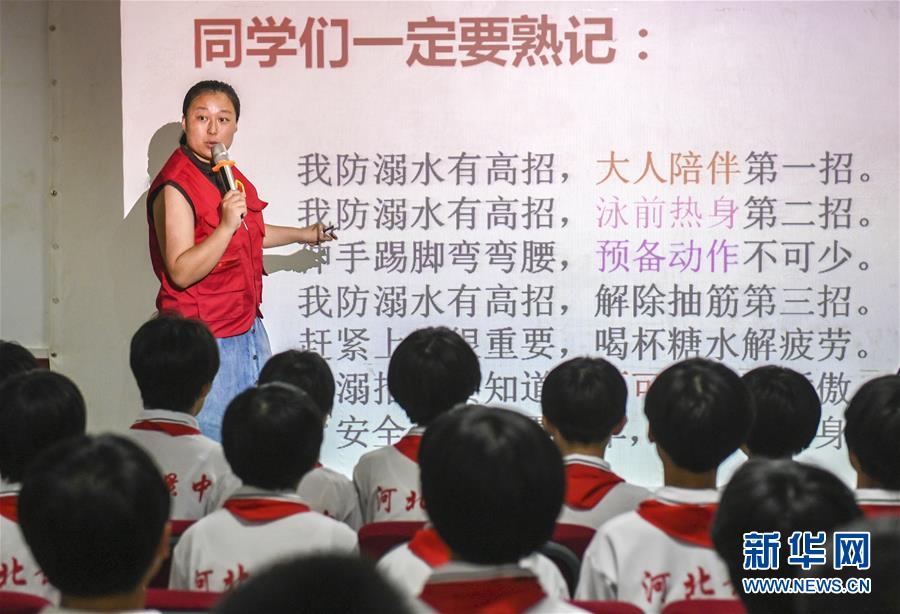 同学们一定要熟记：
我防溺水有高招，大人陪伴第一招。
我防溺水有高招，泳前热身第二招。
伸手踢脚弯弯腰，预备动作不可少。
我防溺水有高招，解除抽筋第三招。
赶紧上 很重要，喝杯糖水解疲劳。
溺 知道 可 傲
安全 身
中
河北
河北
北
河北
河北
新华网
WWW.NEWS.CN